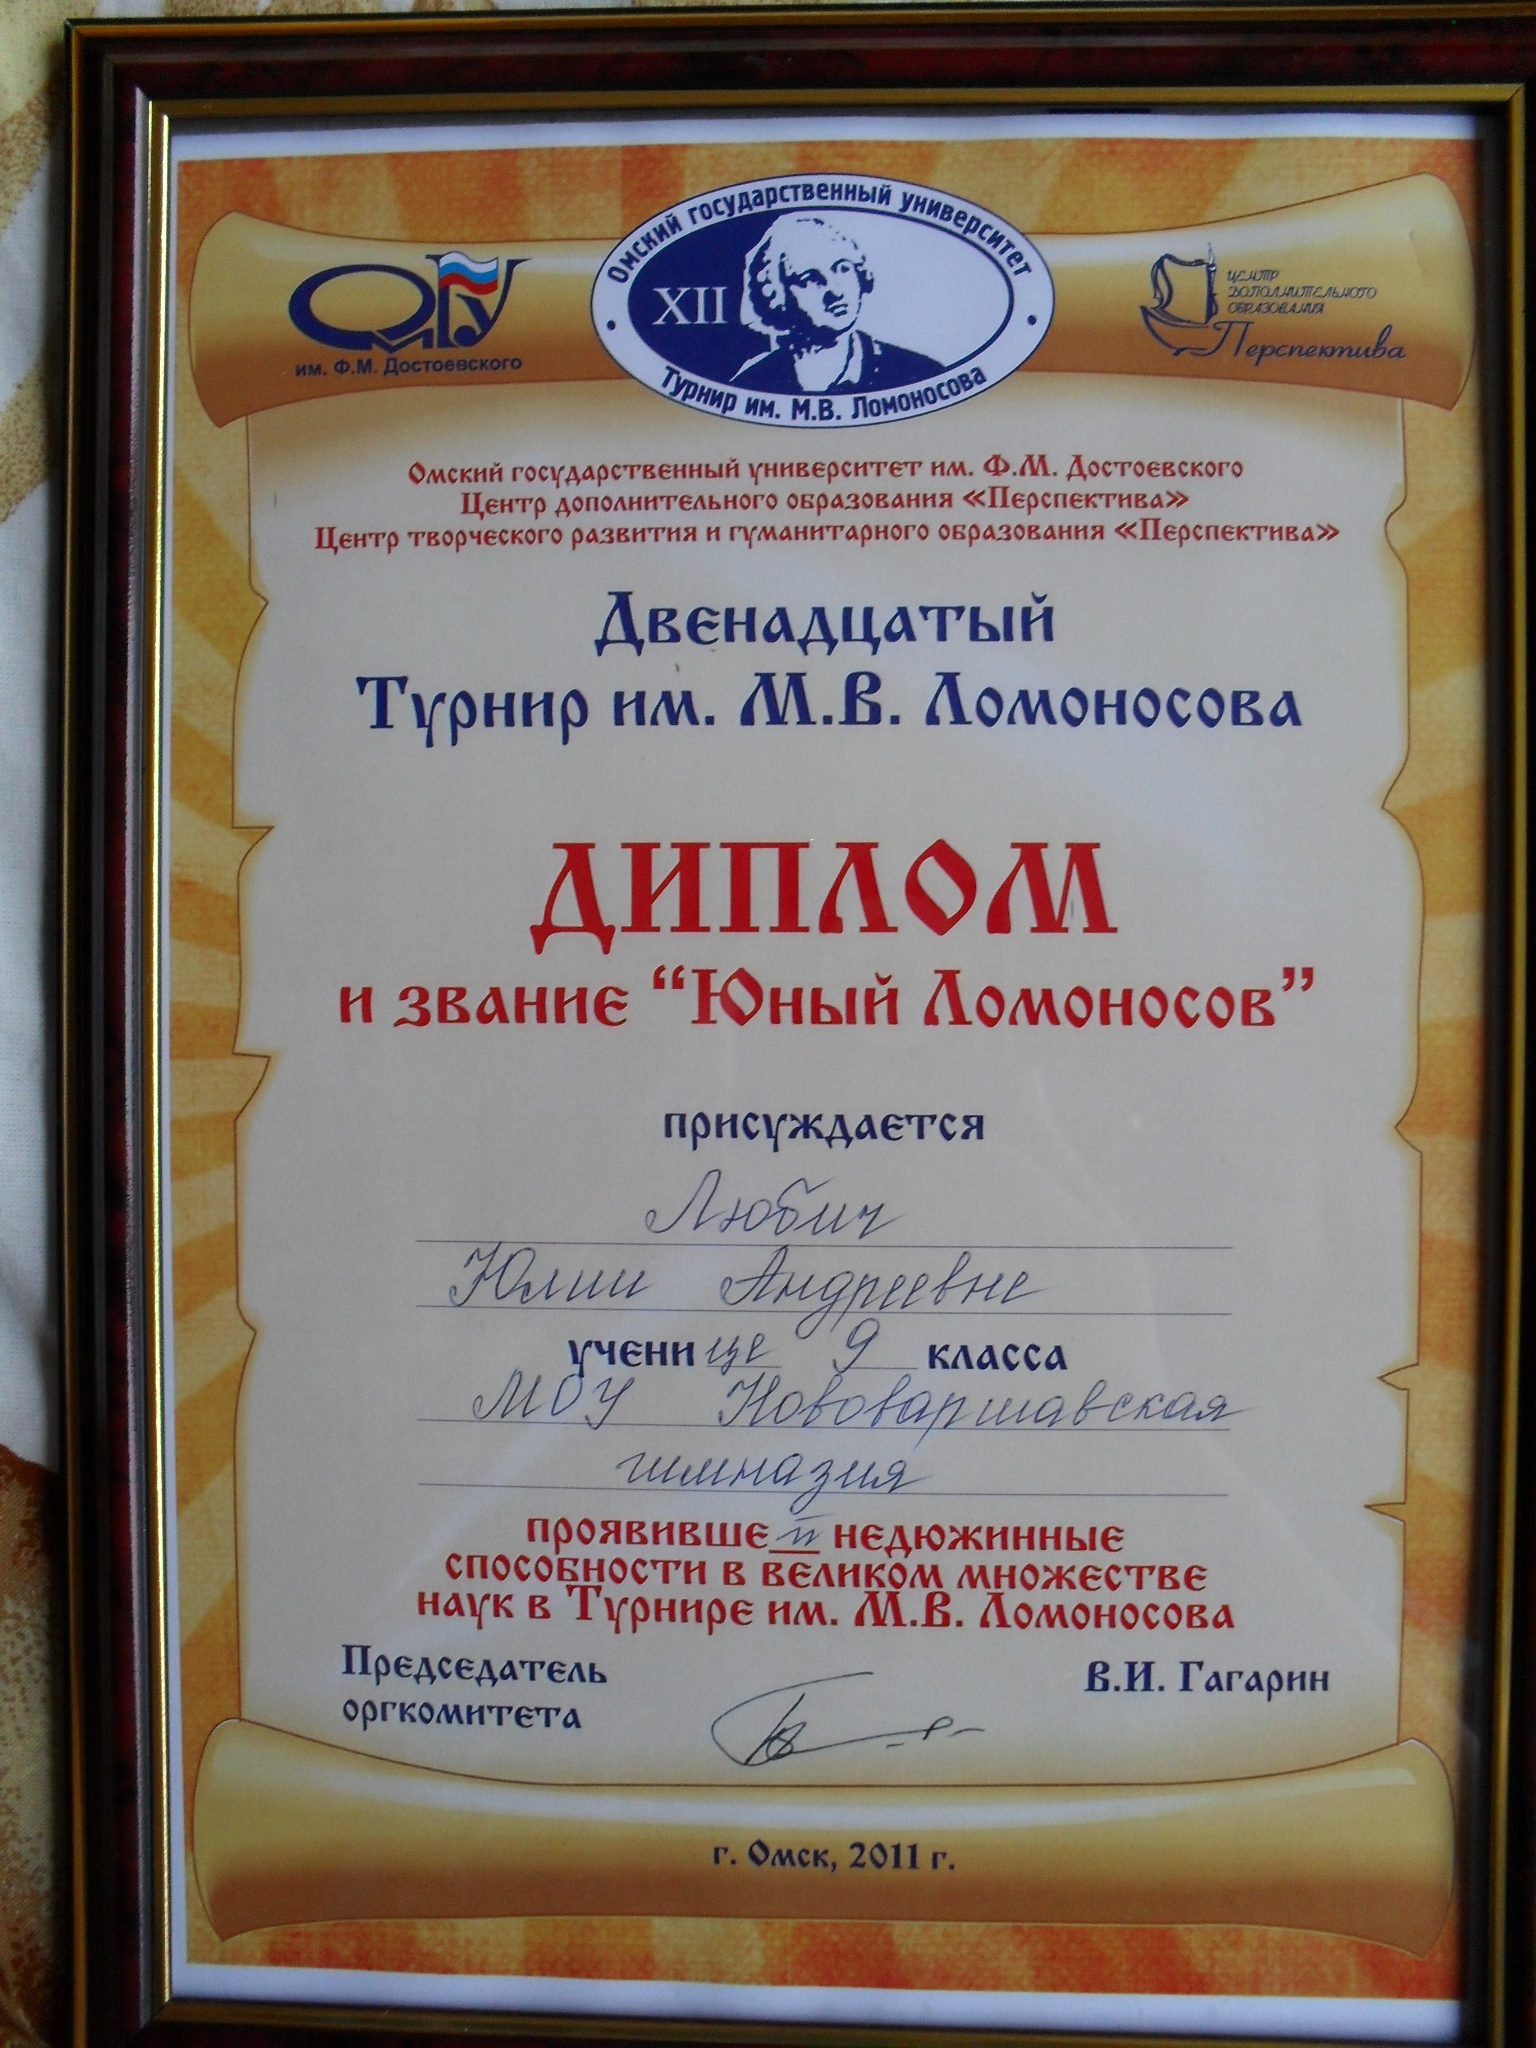 ОмГУ
им. Ф.М. Достоевского
Омский государственный университет
XII
Турнир им. М.В. Ломоносова
ЦЕНТР
ДОПОЛНИТЕЛЬНОГО
ОБРАЗОВАНИЯ
Перспектива
Омский государственный университет им. Ф.М. Достоевского
Центр дополнительного образования «Перспектива»
Центр творческого развития и гуманитарного образования «Перспектива»
Двенадцатый
Турнир им. М.В. Ломоносова
ДИПЛОМ
и звание “Юный Ломоносов”
присуждается
Любич
Юлии Андреевне
ученице 9 класса
МОУ Нововаршавская
гимназия
проявившей недюжинные
способности в великом множестве
наук в Турнире им. М.В. Ломоносова
Председатель В.И. Гагарин
оргкомитета
г. Омск, 2011 г.